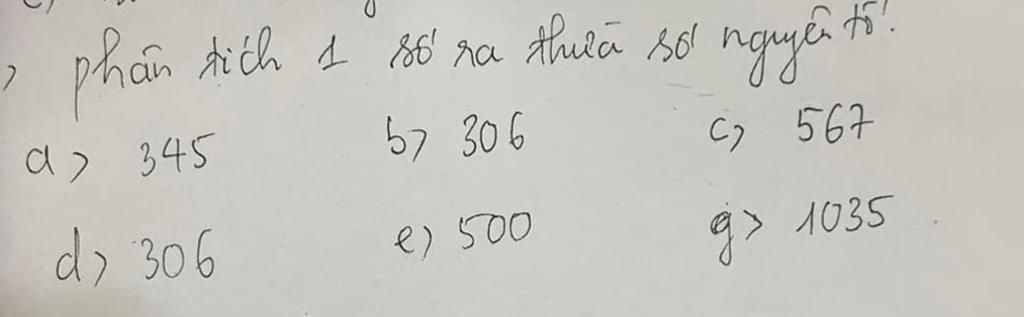 phân tích 1 số ra thừa số nguyên tố.
a> 345 b> 306 c> 567
d> 306 e> 500 g> 1035